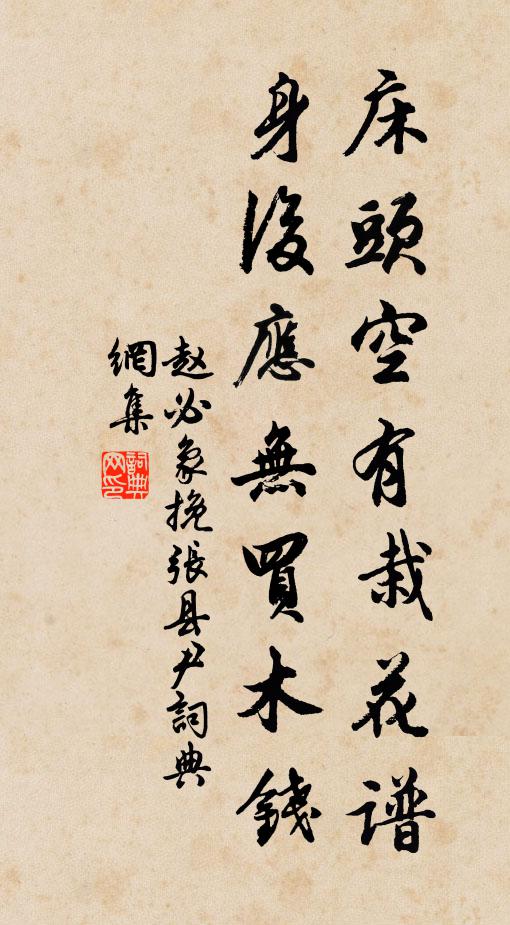 床頭空有栽花谱
身後應無買木錢
赵必象挽張县尹詞典
網集
詞典网印